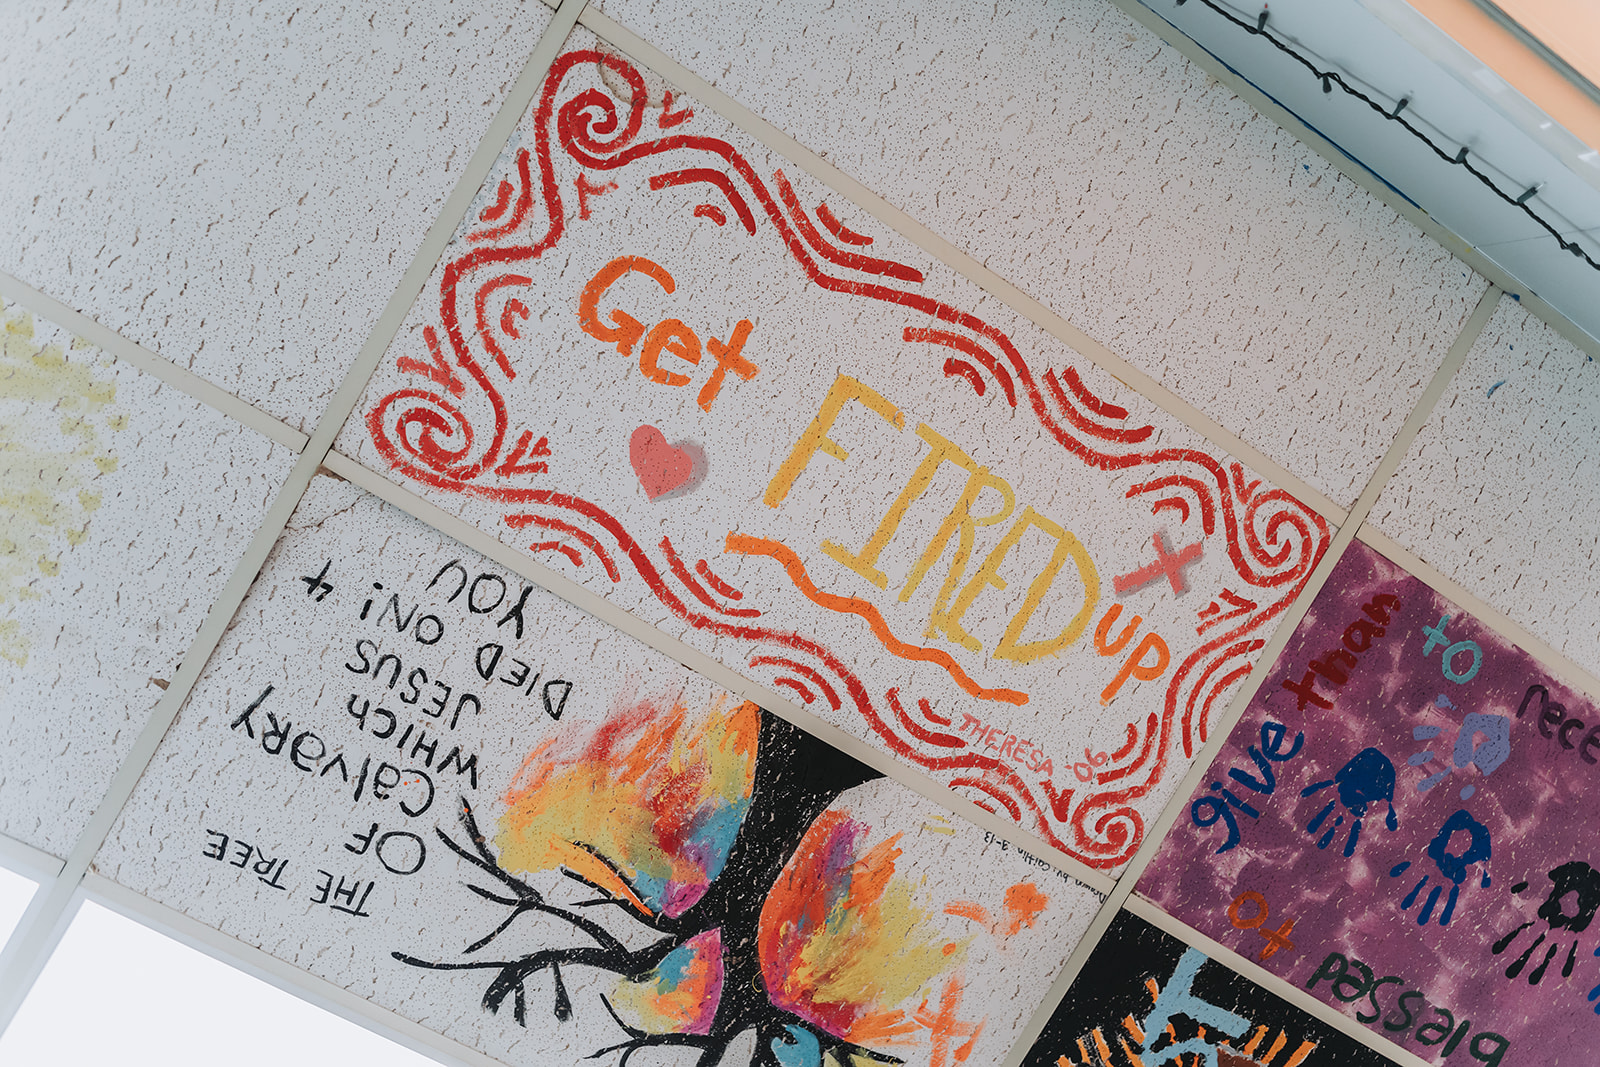 Get
FIRED
UP
THERESA -06
THE TREE
OF
CalvaRY
WHICH
JESUS
DIED ON! 4
YOU
Drawn by: Caitlin 3-13
blessed
to
give than
to rece